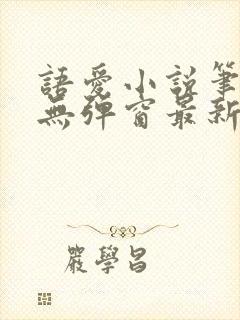 語愛小說筆
無彈窗最新
嚴學昌